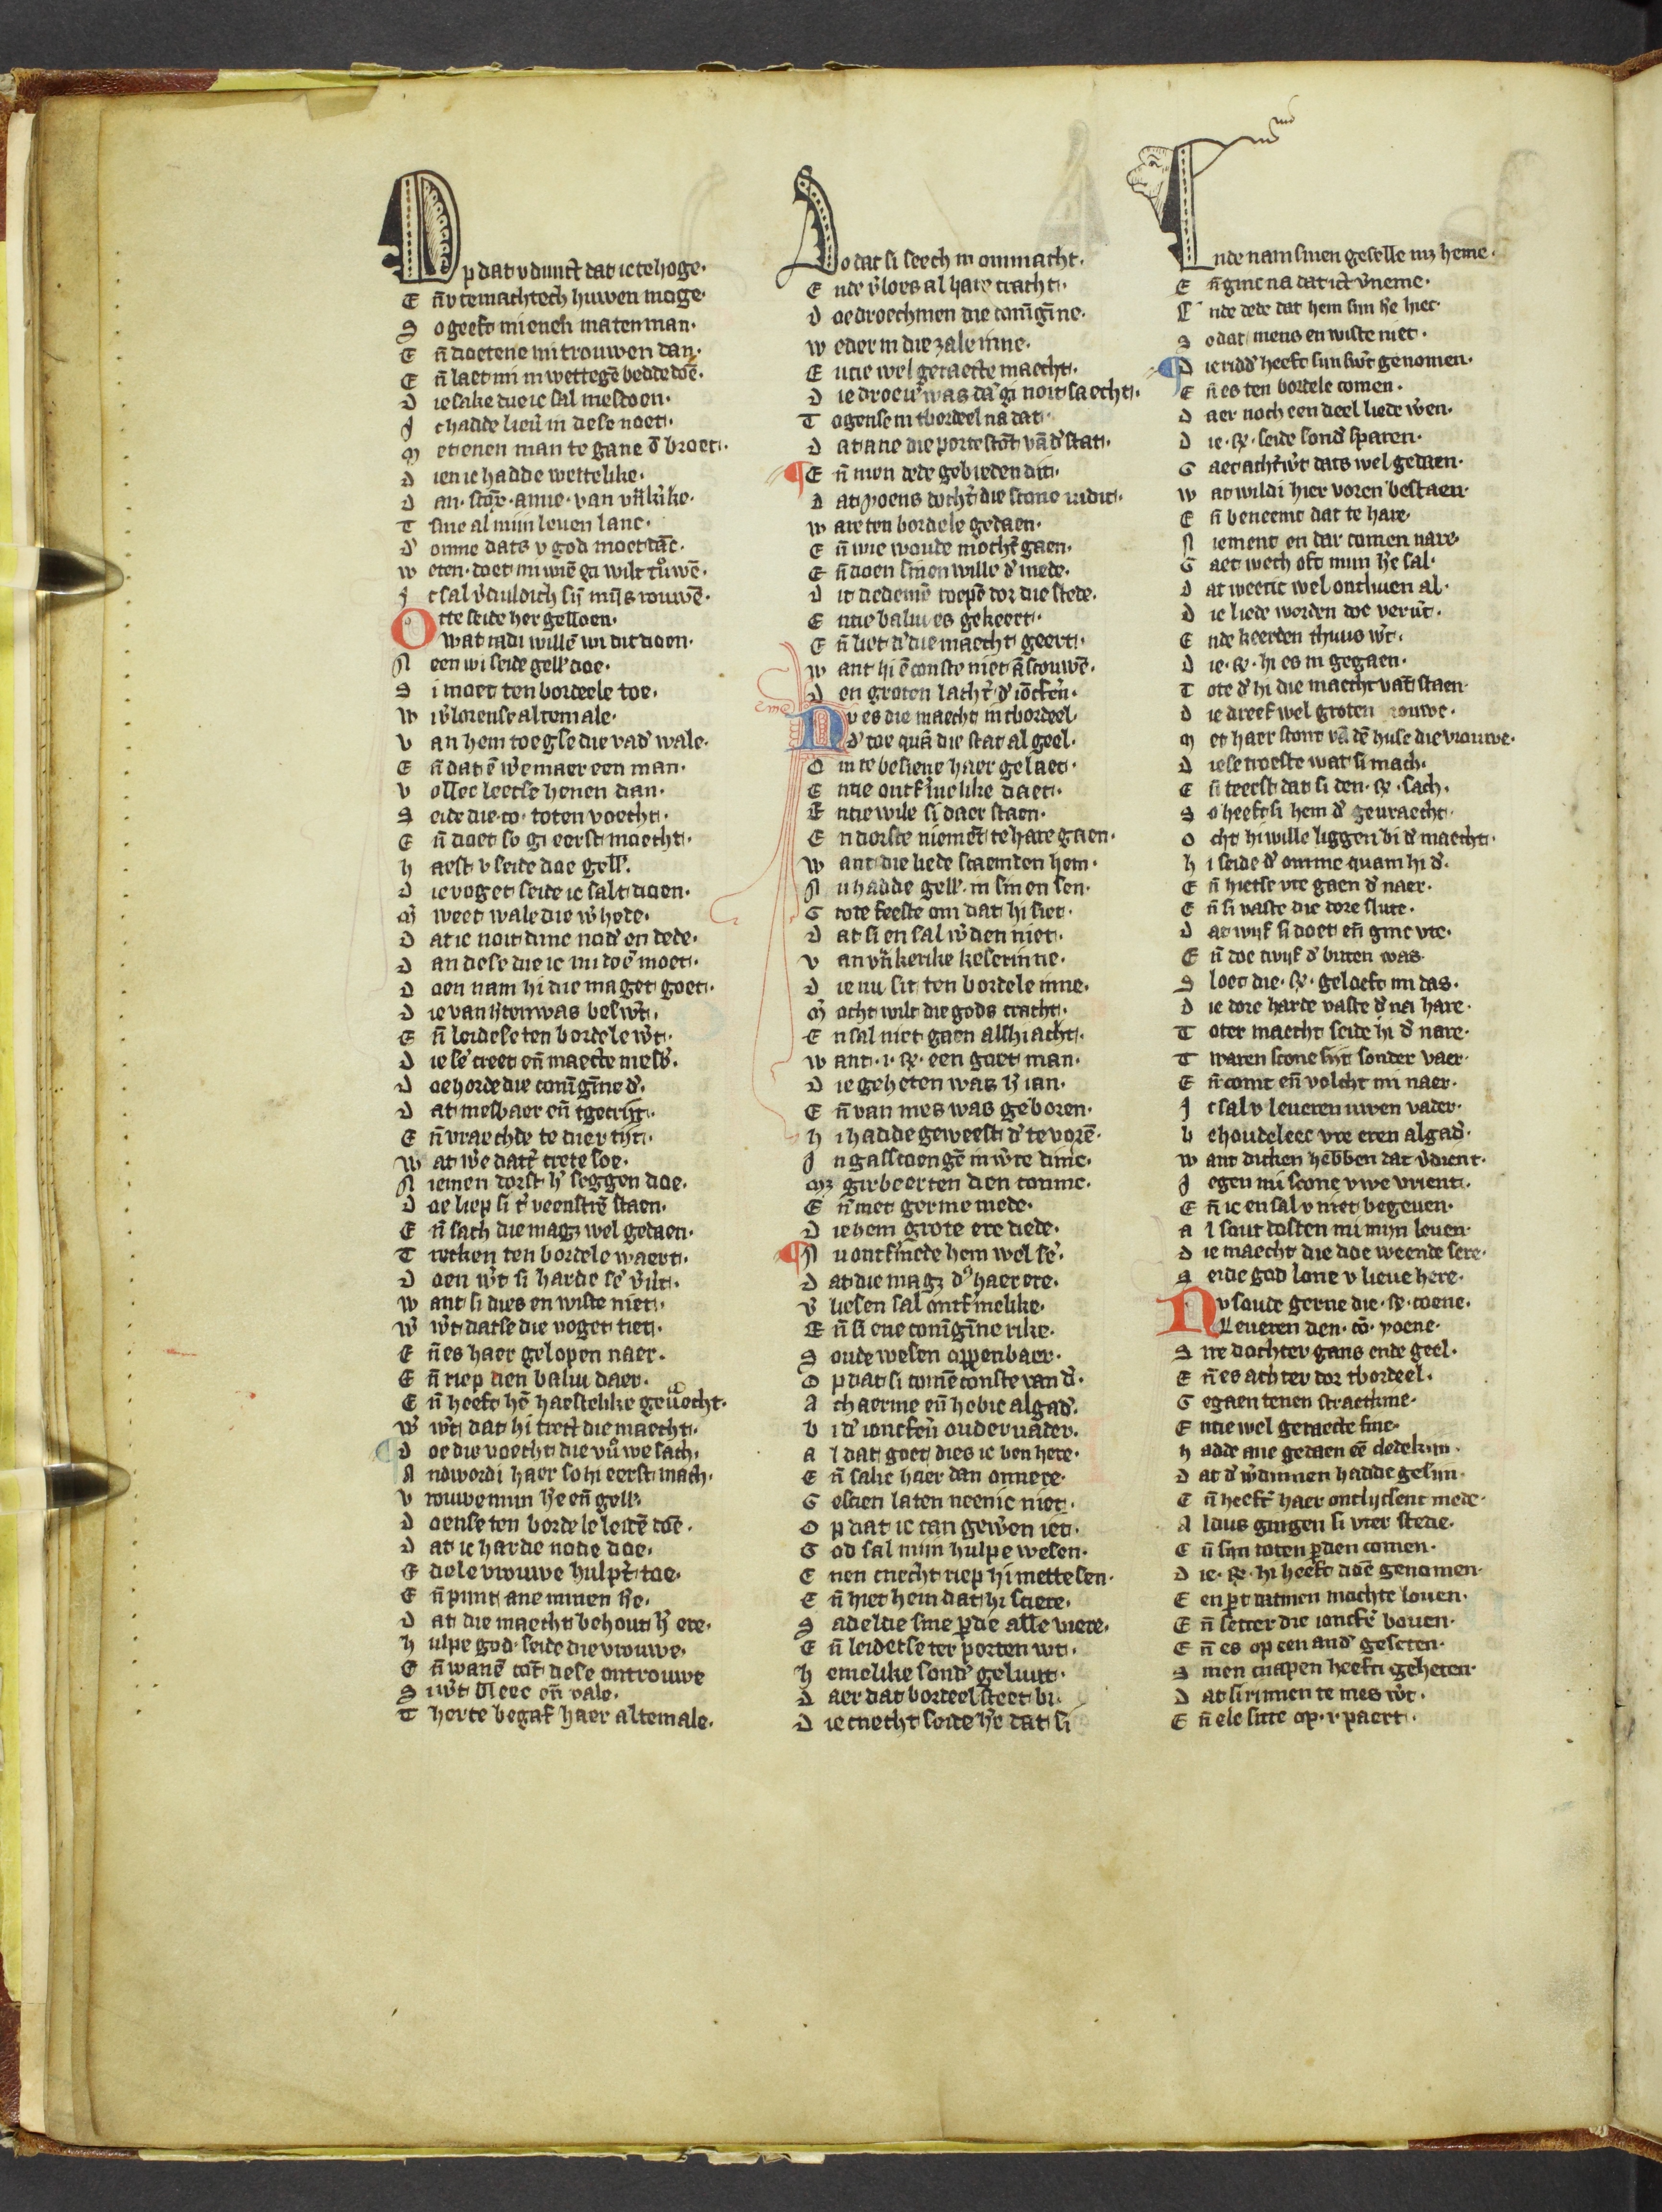 Op dat v dunct dat ic te hoge·
En̄ v te machtech huwen moge·
So geeft mi eneh maten man·
En̄ doetene mi trouwen dan·
En̄ laet mi in wettegē bedde doē·
Die sake die ic sal mestoen·
Ic hadde lieu̇ in dese noet·
Met enen man te gane ď broet·
Dien ic hadde wettelike·
Dan· anne· van
Tsine al mijn leuen lanc·
D'omme dats v god moet dāc·
Weten· doet mi wiē gi wilt
Ic sal
Otte seide her gelloen·
Wat radi willē wi dit doen·
Neen wi seide gell' doe·
Si moet ten bordeele toe·
Wi v̇lorense altemale·
Van hem toe gse die vad' wale·
En̄ dat ē w̄e maer een man·
Vollec leetse henen dan·
Seide die· co· toten voecht·
En̄ doet so gi eerst moecht·
Haest v seide doe gell'·
Die voget seide ic salt doen·
M̄ weet wale die w̄hede·
Dat ic noit dinc nod' en dede·
Dan dese die ic nu doē moet·
Doen nam hi die maget goet·
Die van was besw̄t·
En̄ leidese ten bordele w̄t·
Die se' creet en̄ maecte mesb'·
Doe horde die conīgīne d'·
Dat mesbaer en̄ tgecrijt·
En̄ vraechde te dier tijt·
Wat w̄e datt' crete soe·
Niemen dorst h' seggen doe·
Doe liep si t' veenstrē staen·
En̄ sach die magȝ wel gedaen·
Trecken ten bordele waert·
Doen w̄t si harde se' v̄v̄t·
Want si dies en wiste niet·
W̄ w̄t datse die voget tiet·
En̄ es haer gelopen naer·
En̄ riep dien baliu daer·
En̄ heeft hē haestelike geu̇echt·
W̄ w̄t dat hi trect die maecht·
Doe die voecht die vr̊uwe sach·
Andwordi haer so hi eerst mach·
Vrouwe mijn h̄e en̄ gell'·
Doense ten bordele leidē doē·
Dat ic harde node doe·
Edele vrouwe hulp't toe·
En̄ pijnt ane minen h̄e·
Dat die maecht behout h̄ ere·
Hulpe god· seide die vrouwe·
En̄ wanē coīt dese ontrouwe
Si w̄t bleec en̄ vale·
Therte begaf haer altemale·
Do dat si seech in onmacht·
Ende v̄loes al hare cracht·
Doe droechmen die conīgīne·
Weder in die zale inne·
Entie wel geraecte maecht·
Die droeu̇' was dā gi noit saecht·
Togense int bordeel na dat·
Dat ane die porte stōt vā ď stat·
En̄ men dede gebieden dit·
Dat yoens docht' die scone iudit·
Ware ten bordele gedaen·
En̄ wie woude mocht' gaen·
En̄ doen sinen wille ď mede·
Dit dedemē roepē dor die stede·
Entie baliu es gekeert·
En̄ liet ď die maecht geert·
Want hi ē conste niet ā scouwē·
Den groten lacht' ď iōcfru̇·
Nv es die maecht int bordeel·
D' toe quā die stat al geel·
Om te besiene haer gelaet·
Entie ontf'melike daet·
Entie wile si daer staen·
En dorste niemēt te hare gaen·
Want die liede scaemden hem·
Nu hadde gell'· in sinen sen·
Grote feeste om dat hi siet·
Dat si en sal w̄den niet·
Van v̄nkerike keserinne·
Die nu sit ten bordele inne·
M̄ocht wilt die gods cracht·
En sal niet gaen alshi acht·
Want·i·R̄·een goet man·
Die geheten was h̄ ian·
En̄ van mes was geboren·
Hi hadde geweest ď te vorē·
In gasscoengē in w̄re dinc·
Mȝ girbeerten den coninc·
En̄ met germe mede·
Die hem grote ere dede·
Nu ontf'mede hem wel se'·
Dat die magȝ d' haer ere·
V̄liesen sal ontf'melike·
En̄ si ene conīgīne rike·
Soude wesen oppenbaer·
Op dat si comē conste van d'·
Acharme en̄ hebic algad'·
Bi ď ioncfru̇ oudervader·
Al dat goet dies ic ben here·
En̄ salic haer dan onnere·
Gescien laten neenic niet·
Op dat ic can gew̄en iet·
God sal mijn hulpe wesen·
Enen cnecht riep hi mettesen·
En̄ hiet hem dat hi sciere·
Sadeldie sine p̄die alle viere·
En̄ leidetse ter porten wt·
Hemelike sond' geluut·
Daer dat bordeel steet bi·
Die cnecht seide h̄e dat si
Ende nam sinen geselle mȝ heme·
En̄ ginc na dat ict v̄neme·
Ende dede dat hem sijn h̄e hiet·
Sodat mens en wiste niet·
Die ridd' heeft sijn sw̄t genomen·
En̄ es ten bordele comen·
Daer noch een deel liede w̄en·
Die·R̄·seide sond' sparen·
Gaet acht'w̄t dats wel gedaen·
Wat wildi hier voren bestaen·
En̄ beneemt dat te hare·
Niement en dar comen nare·
Gaet wech oft mijn h̄e sal·
Dat weetic wel onthuen al·
Die liede worden doe verv̄t·
Ende keerden thuus w̄t·
Die·R̄·hi es in gegaen·
Tote d' hi die maecht vāt staen·
Die dreef wel groten rouwe·
Met haer stont vā dē huse die vrouwe·
Die se troeste wat si mach·
En̄ teerst dat si den·R̄·sach·
So heeft si hem d' gevraecht·
Ocht hi wille liggen bi d' maecht·
Hi seide d' omme quam hi d'·
En̄ hietse vte gaen d' naer·
En̄ si vaste die dore slute·
Dat wijf si doet en̄ ginc vte·
En̄ doe twijf d' buten was·
Sloet die·R̄·geloeft mi das·
Die dore harde vaste d' na hare·
Toter maecht seide hi d' nare·
Twaren scone sijt sonder vaer·
En̄ comt en̄ volcht mi naer·
Ic sal v leueren uwen vader·
Behoudeleec vre eren algad'·
Want dicken hebben dat v̄dient·
Jegen mi scone vwe vrient·
En̄ ic en sal v niet begeuen·
Al sout costen mi mijn leuen·
Die maecht die doe weende sere·
Seide god lone v lieue here·
Nv soude gerne die·R̄·coene·
Leueren den· cō· yoene·
Sire dochter gans ende geel·
En̄ es achter dor tbordeel·
Gegaen tenen straetkine·
Entie wel geraecte fine·
Hadde ane gedaen eē cledekijn·
Dat d' w̄dinnen hadde gesijn·
En̄ heeft' haer ontlijcsent mede·
Aldus gingen si vter stede·
En̄ sijn toten p̄den comen·
Die·R̄·hi heeft doē genomen·
Een p̄t datmen mochte louen·
En̄ setter die ioncfr̄ bouen·
En̄ es op een and' geseten·
Sinen cnapen heefti geheten·
Dat si rinnen te mes w̄t·
En̄ elc sitte op·i·paert·